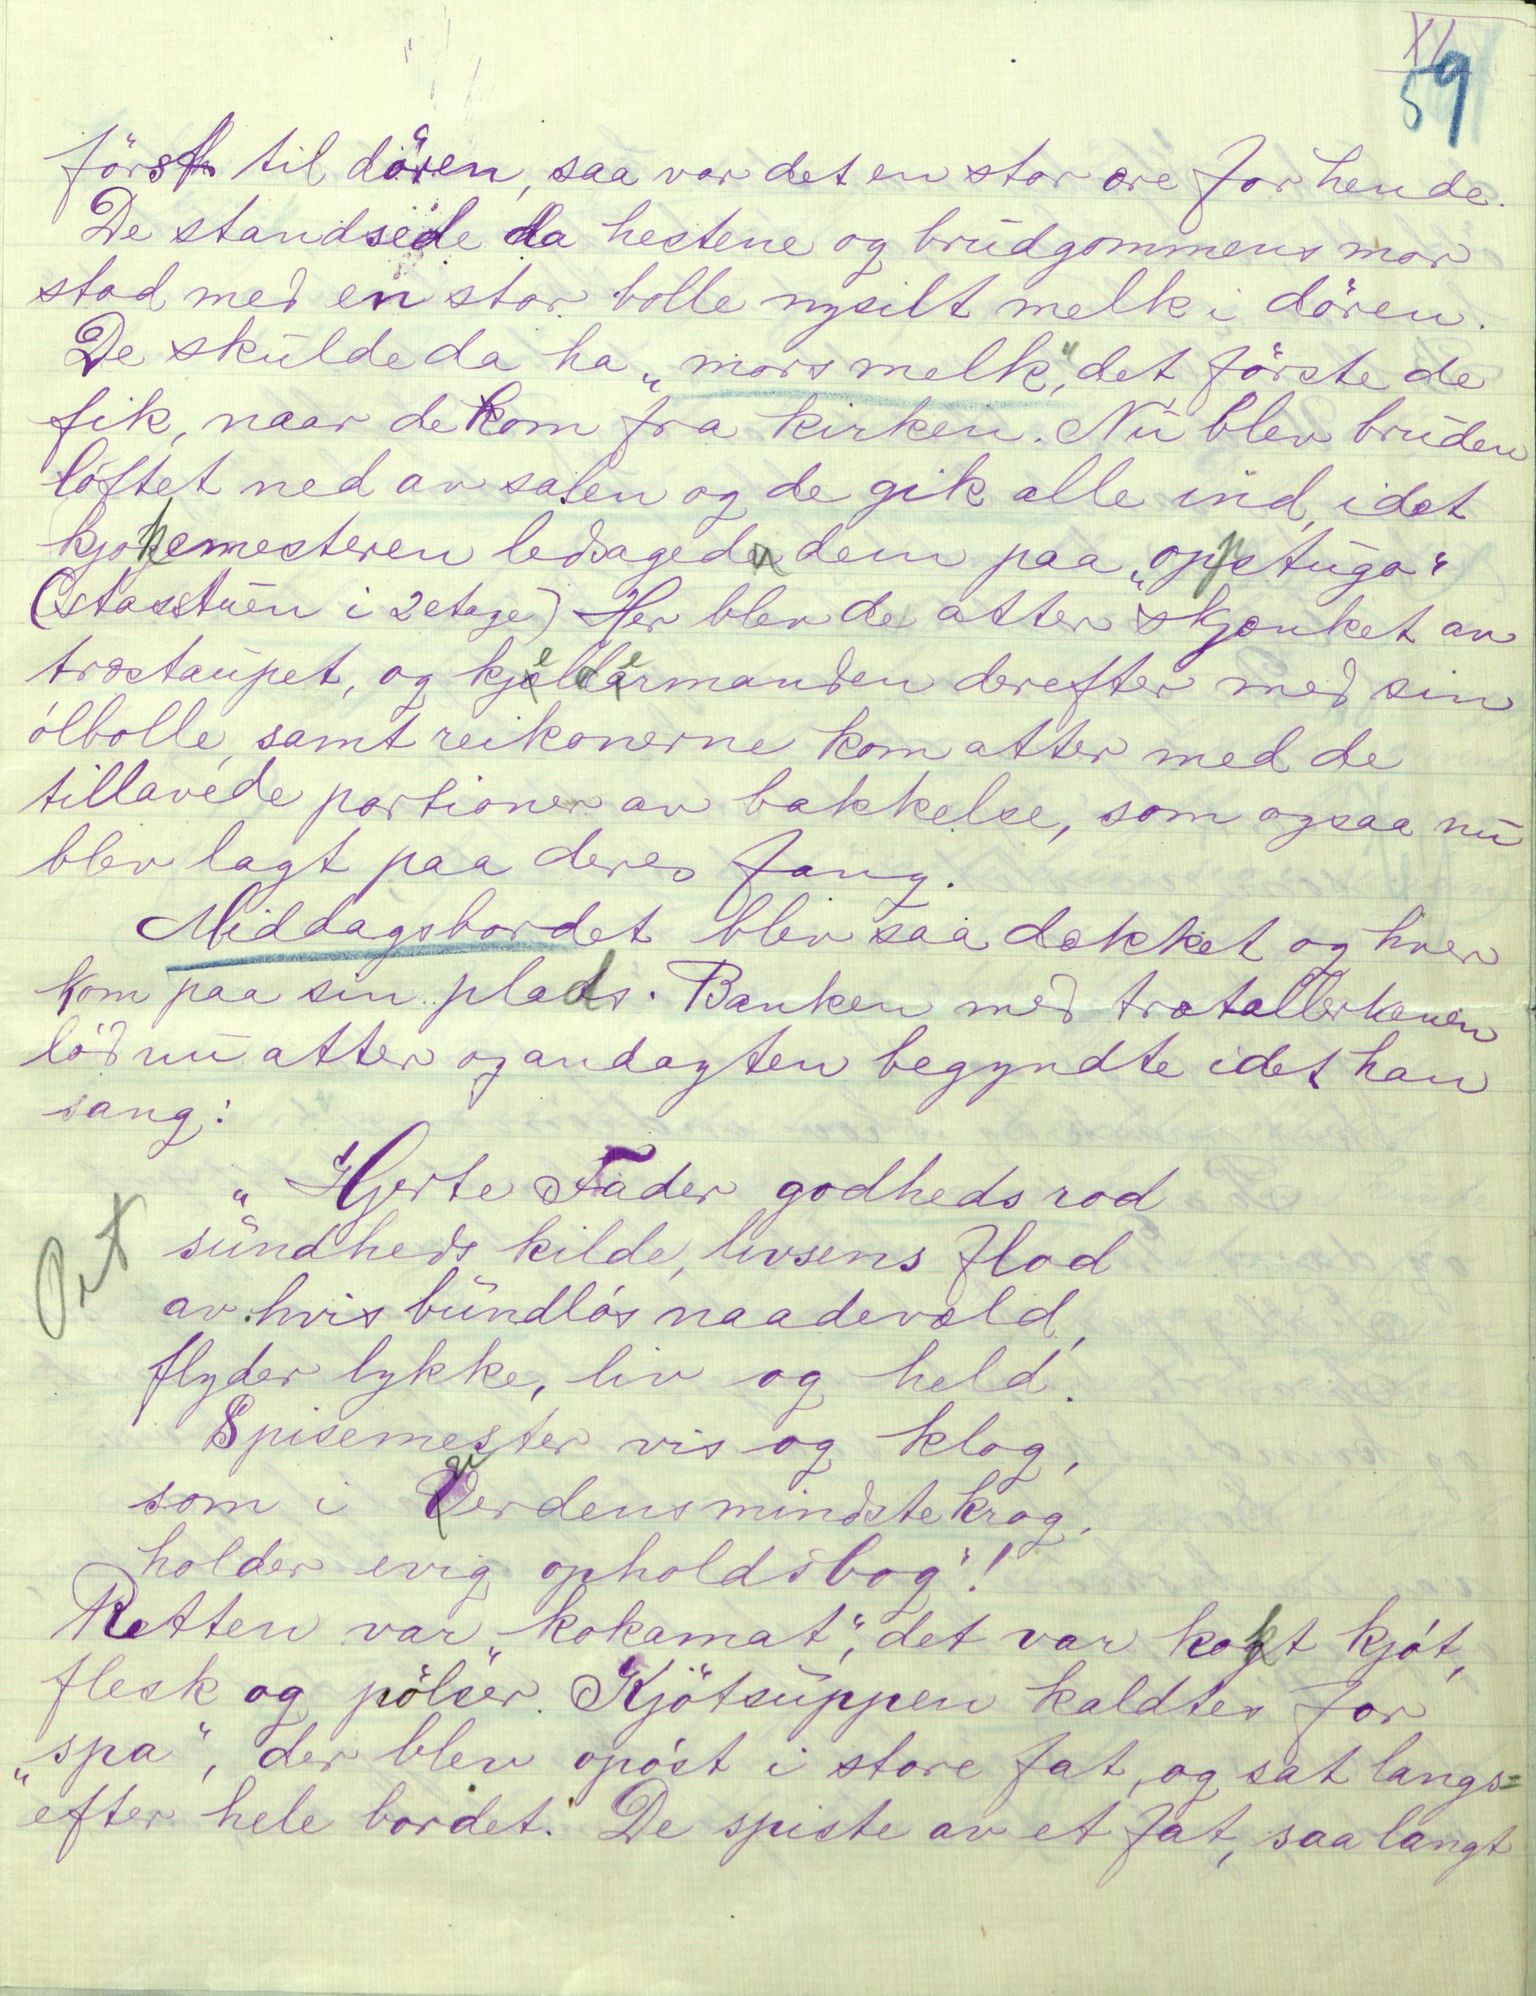 XL
59
först til dören, saa var det en stor ære for hende.
De standsede da hestene og brudgommens mor
stod med en stor bolle nysilt melk i dören.
De skulde da ha „mors melk", det förste de
fik, naar de kom fra kirken. Nu blev bruden
löftet ned av salen og de gik alle ind, idet
kjøkemesteren ledsagede dem paa „oppstugo"
(stasstuen i 2 etage) Her blev de atter skjænket av
træstaupet, og kjeldermanden derefter med sin
ólbolle, samt reikonerne kom atter med de
tillavede portioner av bakkelse, som ogsaa nu
blev lagt paa deres fang.
Middagsbordet blev saa dækket og hver
kom paa sin plads. Banken med trætallerkenen
löd nu atter og andagten begyndte idet han
sang:
„Hjerte Fader godheds rod
sundheds kilde, livsens flod
av hvis bundlós naadevæld,
flyder lykke, liv og held.
Spisemester vis og klog,
som i Verdens mindste krog,
holder evig opholdsbog"!
Retten var „kokamat", det var kokt kjót,
flesk og pölser. Kjötsuppen kaldtes for
„spa", der blev opóst i store fat, og sat langs=
efter hele bordet. De spiste av et fat, saa langt